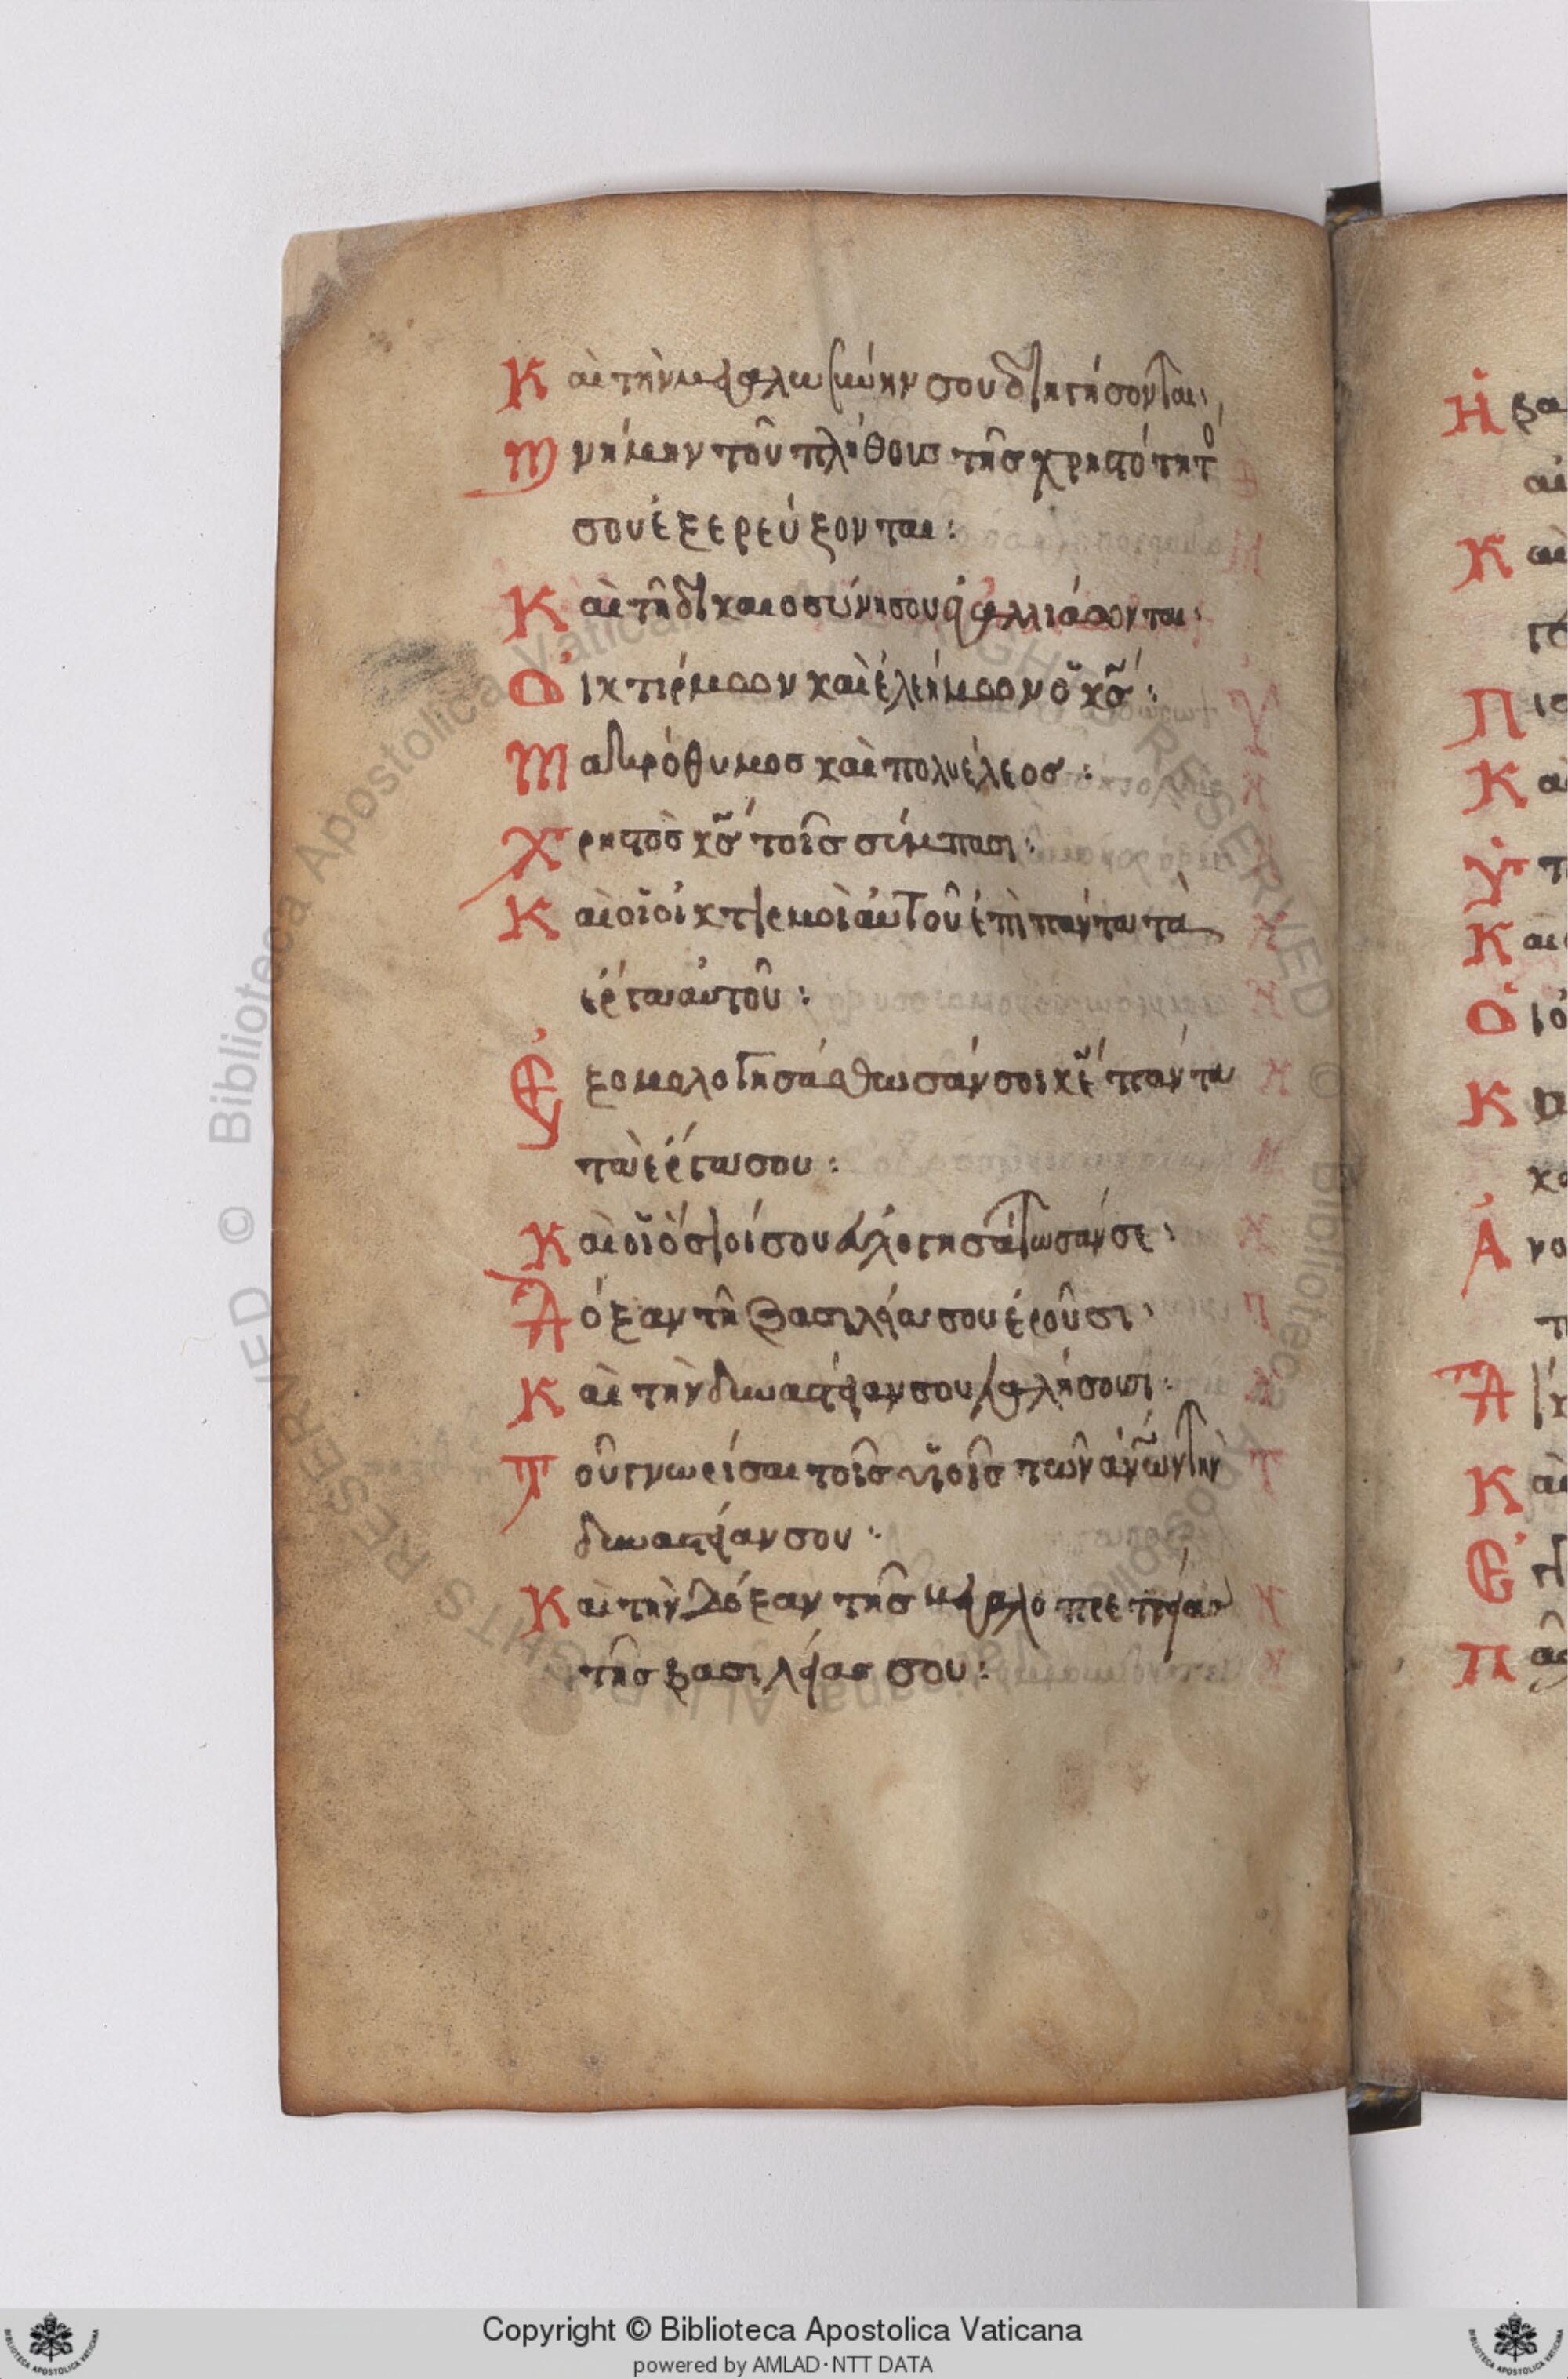 Καὶ τὴν μεγαλωσύνην σου διηγήσονται·
Μνήμην τοῦ πλήθους τῆς χρηστότητο
σου ἐξερεύξονται:
Καὶ τῆ δικαιοσύνη σου ἀγαλλιάσονται:
Οἰκτίρμων καὶ ἐλεήμων ὁ κς:
Μακρόθυμος καὶ πολυέλεος:
Χρηστὸς κς τοῖς σύμπασι:
Καὶ οἱ οἰκτιρμοὶ αὐτοῦ ἐπὶ πάντα τὰ
ἔργα αὐτοῦ:
Ἐξομολογησάσθωσάν σοι κε πάντα
τὰ ἔργα σου:
Καὶ οἱ ὅσιοί σου εὐλογησάτωσάν σε:
Δόξαν τῆ βασιλείας σου ἐροῦσι·
Καὶ τὴν δυναστείαν σου λαλήσουσι:
Τοῦ γνωρίσαι τοῖς υἱοῖς τῶν ἀνων τὴν
δυναστείαν σου:
Καὶ τὴν δόξαν τῆς μεγαλοπρεπείας
τῆς βασιλείας σου:
Copyright © Biblioteca Apostolica Vaticana
powered by AMLAD·NTT DATA